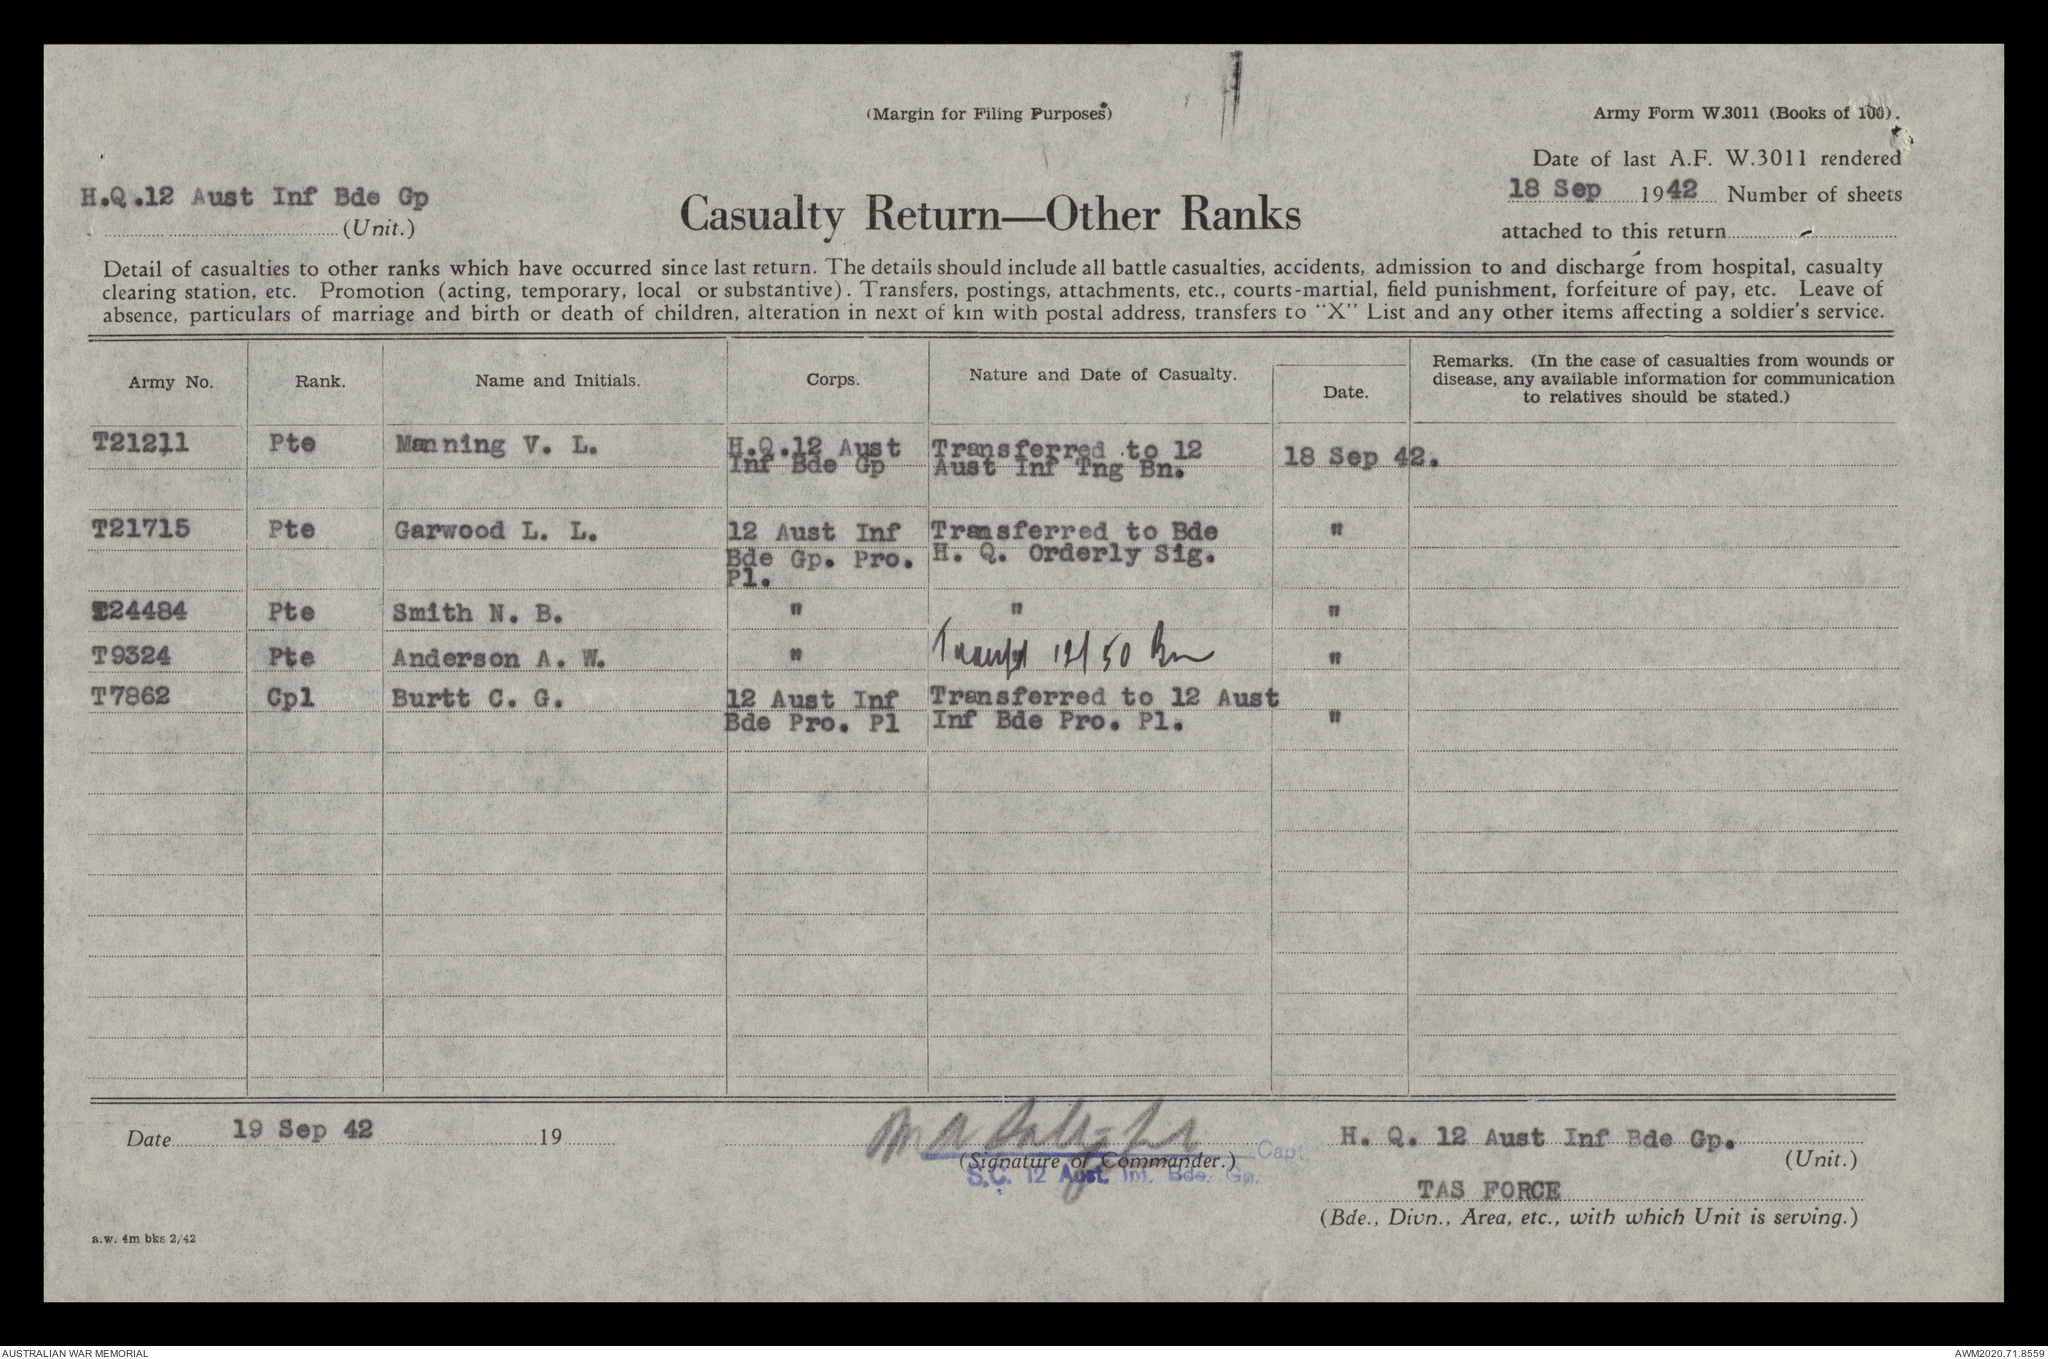 (Margin for Filing Purposes)
Army Form W.3011 (Books of 100).
Date of last A.F. W.3011 rendered
H.Q.12 Aust Inf Bde Gp
18 Sep 1942 Number of sheets
(Unit.)
Casualty Return—Other Ranks
attached to this return -
Detail of casualties to other ranks which have occurred since last return. The details should include all battle casualties, accidents, admission to and discharge from hospital, casualty
clearing station, etc. Promotion (acting, temporary, local or substantive). Transfers, postings, attachments, etc., courts-martial, field punishment, forfeiture of pay, etc. Leave of
absence, particulars of marriage and birth or death of children, alteration in next of kin with postal address, transfers to "X" List and any other items affecting a soldier's service.
Army No. Rank. Name and Initials. Corps. Nature and Date of Casualty. Date.
Remarks. (In the case of casualties from wounds or
disease, any available information for communication
to relatives should be stated.)
T21211 Pte Manning V. L. H.Q.12 Aust Transferred to 12
Inf Bde Gp Aust Inf Tng Bn. 18 Sep 42.
T21715 Pte Garwood L. L. 12 Aust Inf Transferred to Bde "
Bde Gp. Pro. H. Q. Orderly Sig.
Pl.
T24484 Pte Smith N. B. " " "
T9324 Pte Anderson A. W. " 12/50 Bn "
T7862 Cpl Burtt C. G. 12 Aust Inf Transferred to 12 Aust
Bde Pro. Pl Inf Bde Pro. Pl. "
Date 19 Sep 42 19
H. Q. 12 Aust Inf Bde Gp.
Capt.
(Signature of Commander.)
(Unit.)
S.C. 12 Aust. Inf. Bde. Gp.
TAS FORCE
(Bde., Divn., Area, etc., with which Unit is serving.)
a.w. 4m bks 2/42
AUSTRALIAN WAR MEMORIAL
AWM2020.71.8559